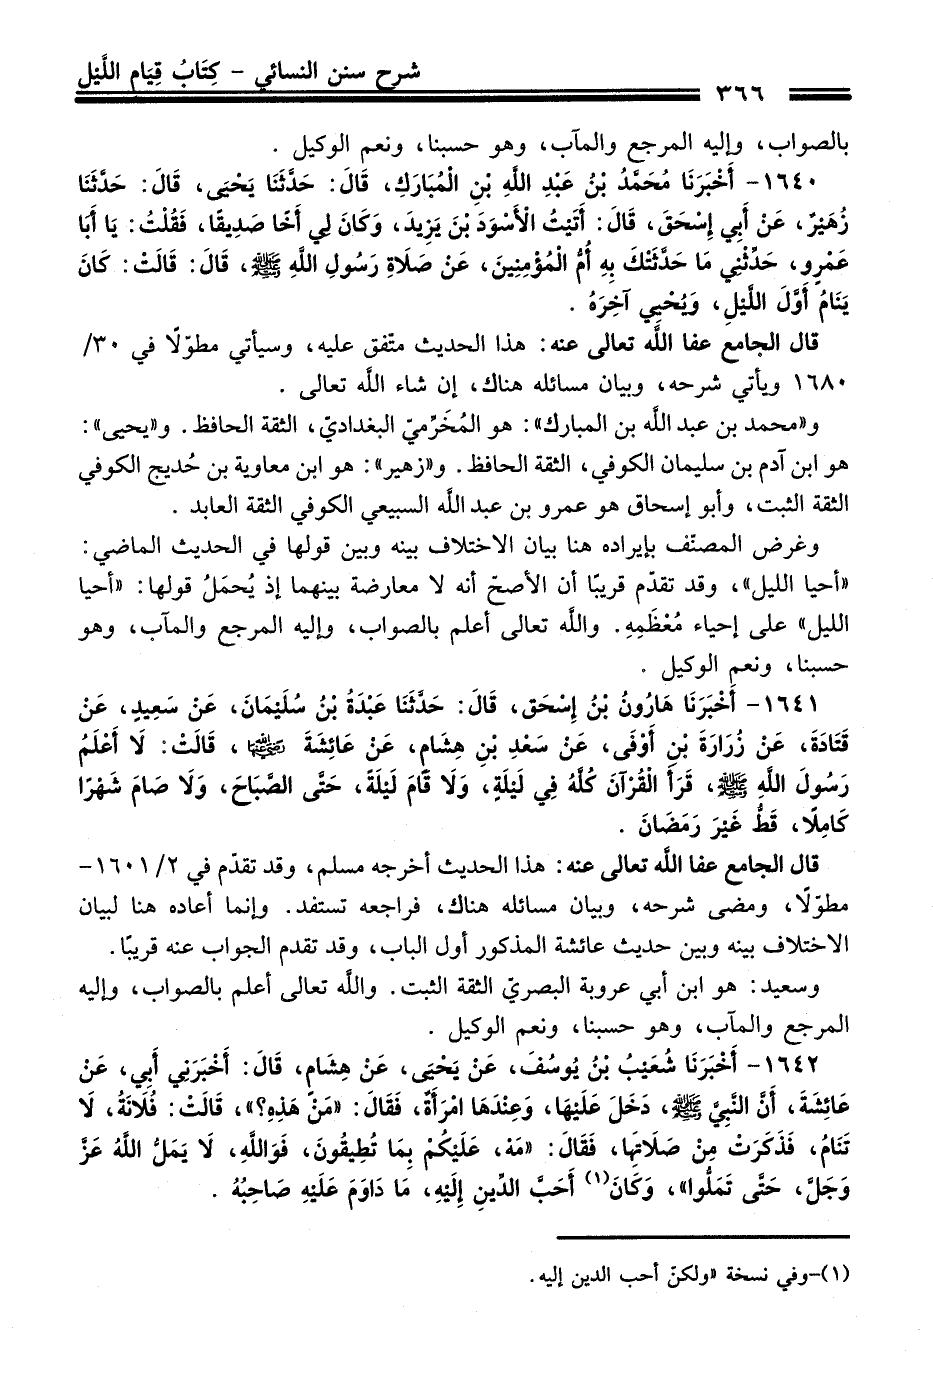 شرح سنن النسائي - كِتَابُ قِيَامِ اللَّيْلِ
٣٦٦
بالصواب، وإليه المرجع والمآب، وهو حسبنا، ونعم الوكيل .
١٦٤٠- أَخْبَرَنَا مُحَمَّدُ بْنُ عَبْدِ اللَّهِ بْنِ الْمُبَارَكِ، قَالَ: حَدَّثَنَا يَحْيَى، قَالَ: حَدَّثَنَا
زُهَيْرٌ، عَنْ أَبِي إِسْحَقَ، قَالَ: أَتَيْتُ الْأَسْوَدَ بْنَ يَزِيدَ، وَكَانَ لِي أَخًا صَدِيقًا، فَقُلْتُ: يَا أَبَا
عَمْرٍو، حَدِّثْنِي مَا حَدَّثَتْكَ بِهِ أُمُّ الْمُؤْمِنِينَ، عَنْ صَلَاةِ رَسُولِ اللَّهِ ﷺ، قَالَ: قَالَتْ: كَانَ
يَنَامُ أَوَّلَ اللَّيْلِ، وَيُحْيِي آخِرَهُ .
قال الجامع عفا اللَّه تعالى عنه: هذا الحديث متّفق عليه، وسيأتي مطوّلًا في ٣٠/
١٦٨٠ ويأتي شرحه، وبيان مسائله هناك، إن شاء اللَّه تعالى .
و«محمد بن عبد اللَّه بن المبارك»: هو المُخَرِّميّ البغداديّ، الثقة الحافظ. و«يحيى»:
هو ابن آدم بن سليمان الكوفي، الثقة الحافظ. و«زهير»: هو ابن معاوية بن حُديج الكوفي
الثقة الثبت، وأبو إسحاق هو عمرو بن عبد اللَّه السبيعي الكوفي الثقة العابد .
وغرض المصنّف بإيراده هنا بيان الاختلاف بينه وبين قولها في الحديث الماضي:
«أحيا الليل»، وقد تقدّم قريبًا أن الأصحّ أنه لا معارضة بينهما إذ يُحمَلُ قولها: «أحيا
الليل» على إحياء مُعْظَمِهِ. واللَّه تعالى أعلم بالصواب، وإليه المرجع والمآب، وهو
حسبنا، ونعم الوكيل .
١٦٤١- أَخْبَرَنَا هَارُونُ بْنُ إِسْحَقَ، قَالَ: حَدَّثَنَا عَبْدَةُ بْنُ سُلَيْمَانَ، عَنْ سَعِيدٍ، عَنْ
قَتَادَةَ، عَنْ زُرَارَةَ بْنِ أَوْفَى، عَنْ سَعْدِ بْنِ هِشَامٍ، عَنْ عَائِشَةَ رضي الله عنها، قَالَتْ: لَا أَعْلَمُ
رَسُولَ اللَّهِ ﷺ، قَرَأَ الْقُرْآنَ كُلَّهُ فِي لَيْلَةٍ، وَلَا قَامَ لَيْلَةً، حَتَّى الصَّبَاحَ، وَلَا صَامَ شَهْرًا
كَامِلًا، قَطُّ غَيْرَ رَمَضَانَ .
قال الجامع عفا اللَّه تعالى عنه: هذا الحديث أخرجه مسلم، وقد تقدّم في ١٦٠١/٢-
مطوّلًا، ومضى شرحه، وبيان مسائله هناك، فراجعه تستفد. وإنما أعاده هنا لبيان
الاختلاف بينه وبين حديث عائشة المذكور أول الباب، وقد تقدم الجواب عنه قريبًا.
وسعيد: هو ابن أبي عروبة البصريّ الثقة الثبت. واللَّه تعالى أعلم بالصواب، وإليه
المرجع والمآب، وهو حسبنا، ونعم الوكيل .
١٦٤٢- أَخْبَرَنَا شُعَيْبُ بْنُ يُوسُفَ، عَنْ يَحْيَى، عَنْ هِشَامٍ، قَالَ: أَخْبَرَنِي أَبِي، عَنْ
عَائِشَةَ، أَنَّ النَّبِيَّ ﷺ، دَخَلَ عَلَيْهَا، وَعِنْدَهَا امْرَأَةٌ، فَقَالَ: «مَنْ هَذِهِ؟»، قَالَتْ: فُلَانَةُ، لَا
تَنَامُ، فَذَكَرَتْ مِنْ صَلَاتِهَا، فَقَالَ: «مَهْ، عَلَيْكُمْ بِمَا تُطِيقُونَ، فَوَاللَّهِ، لَا يَمَلُّ اللَّهُ عَزَّ
وَجَلَّ، حَتَّى تَمَلُّوا»، وَكَانَ(١) أَحَبَّ الدِّينِ إِلَيْهِ، مَا دَاوَمَ عَلَيْهِ صَاحِبُهُ .
(١)-وفي نسخة «ولكنّ أحب الدين إليه.